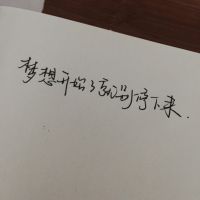 梦想开始了就别停下来.